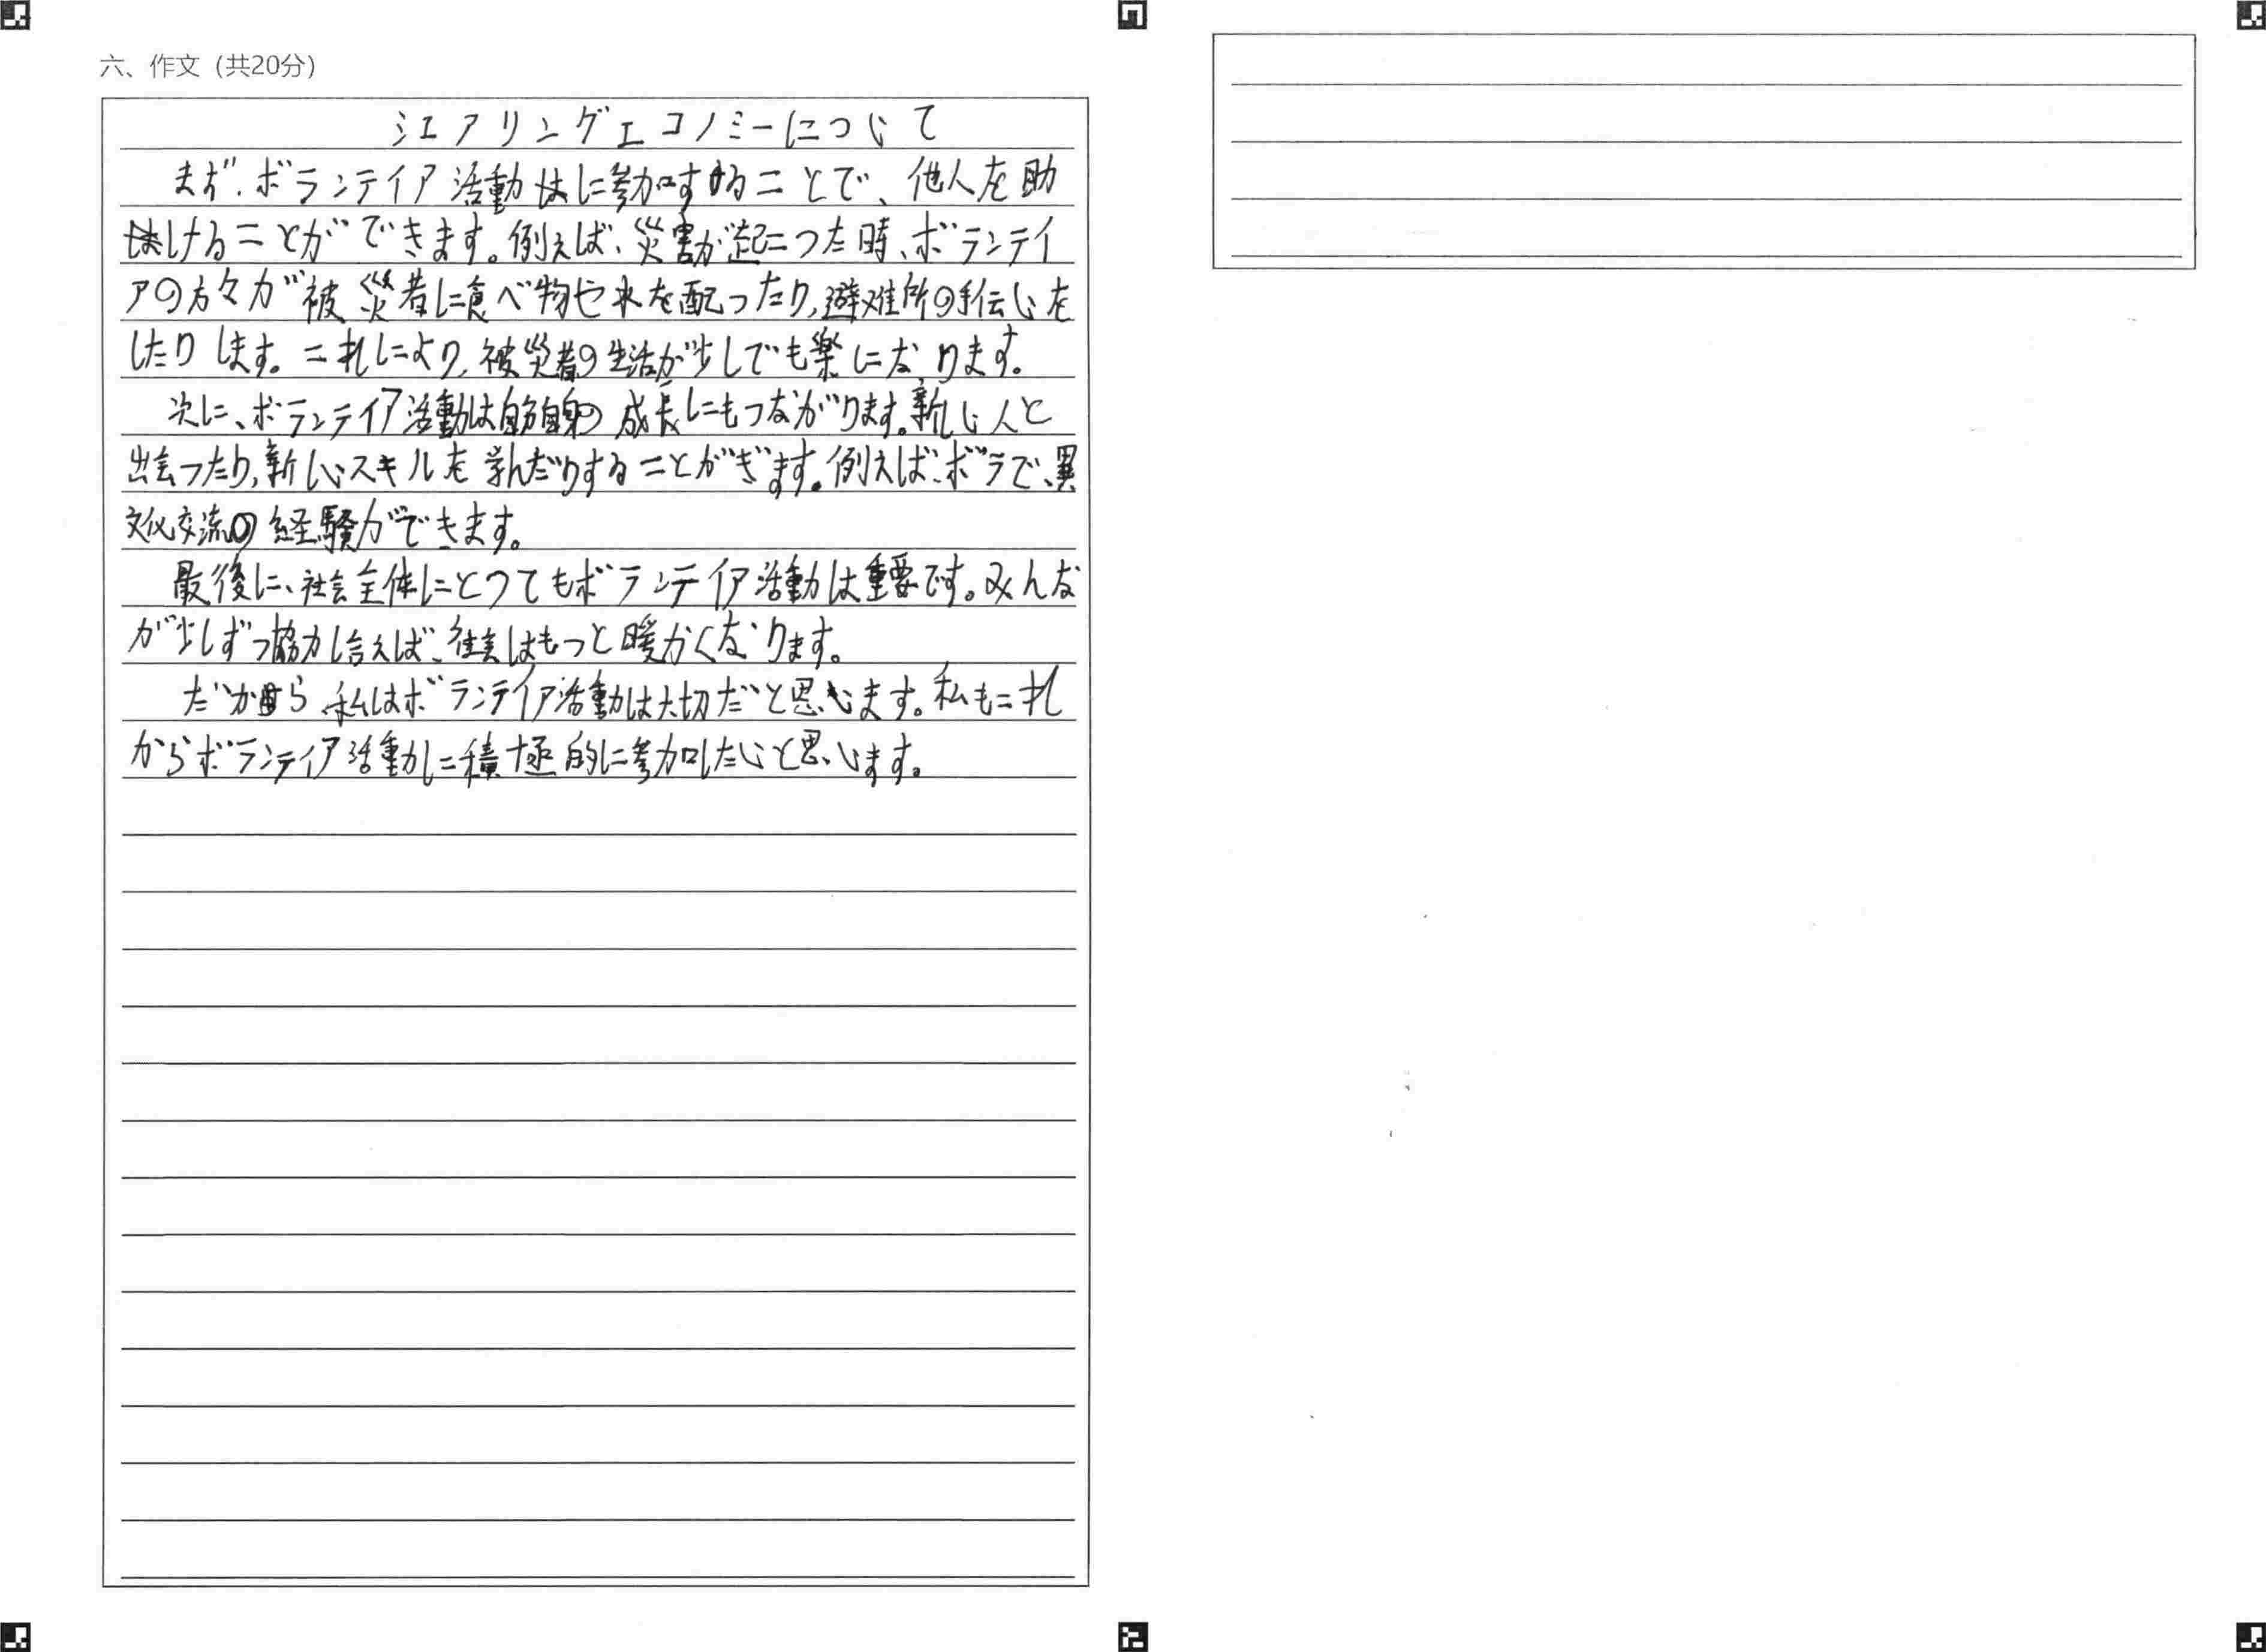 六、作文（共20分）
シェアリングエコノミーについて
まず、ボランティア活動に参加することで、他人を助
けることができます。例えば、災害が起こった時、ボランティ
アの方々が被災者に食べ物や水を配ったり、避難所の手伝いを
したりします。これにより、被災者の生活が少しでも楽になります。
次に、ボランティア活動は自分自身の成長にもつながります。新しい人と
出会ったり、新しいスキルを学んだりすることがぎます。例えば、ボラで、異
文化交流の経験ができます。
最後に、社会全体にとってもボランティア活動は重要です。みんな
が少しずつ協力し合えば、社会はもっと暖かくなります。
だから、私はボランティア活動は大切だと思います。私もこれ
からボランティア活動に積極的に参加したいと思います。